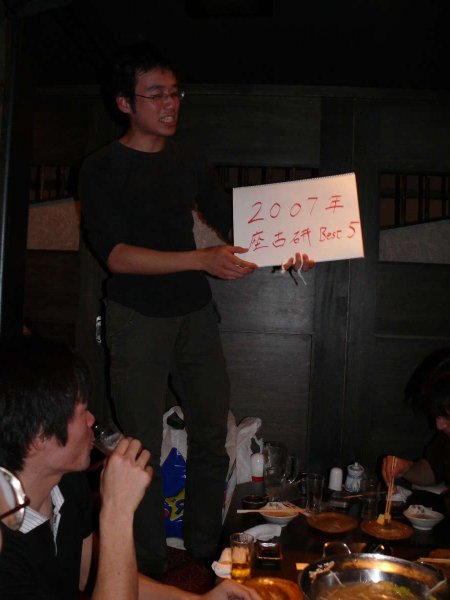 2007年
座古研 Best 5